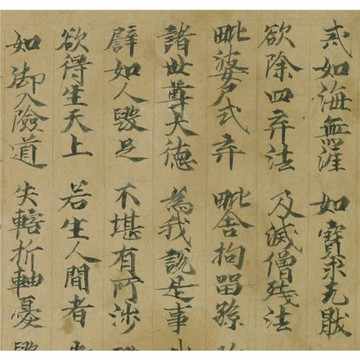 戒如海無涯 如寶求无猒
欲除四弃法 及滅僧殘法
毗婆尸式弃 毗舍拘留孫
諸世尊大德 為我說是事
譬如人毀足 不堪有所涉
欲得生天上 若生人間者
如御入險道 失轄折軸憂